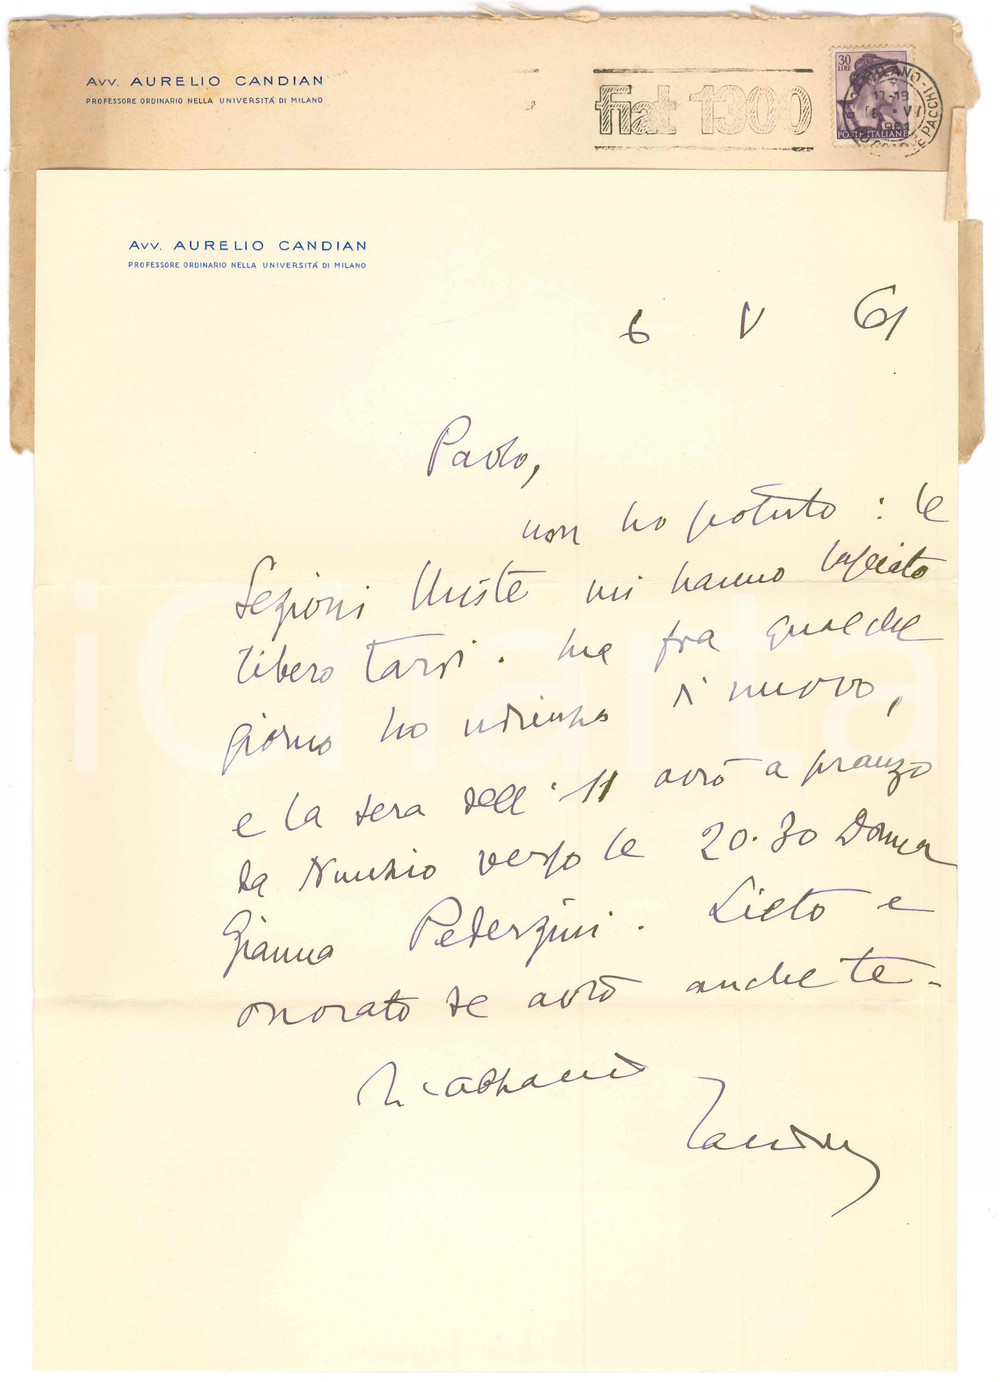 Avv. AURELIO CANDIAN
PROFESSORE ORDINARIO NELLA UNIVERSITÀ DI MILANO
fiat 1300
30
LIRE
MILANO
17-18
POSTE ITALIANE
PACCHI
Avv. AURELIO CANDIAN
PROFESSORE ORDINARIO NELLA UNIVERSITÀ DI MILANO
6 V 61
Paolo,
non ho potuto : le
Sezioni Unite mi hanno lasciato
libero tardi. Ma fra qualche
giorno ho udienza di nuovo,
e la sera dell'11 avrò a pranzo
da Nunzio verso le 20.30 Donna
Gianna Pederzini. Lieto e
onorato se avrò anche te-
Ti abbraccio
Candian
iCharta